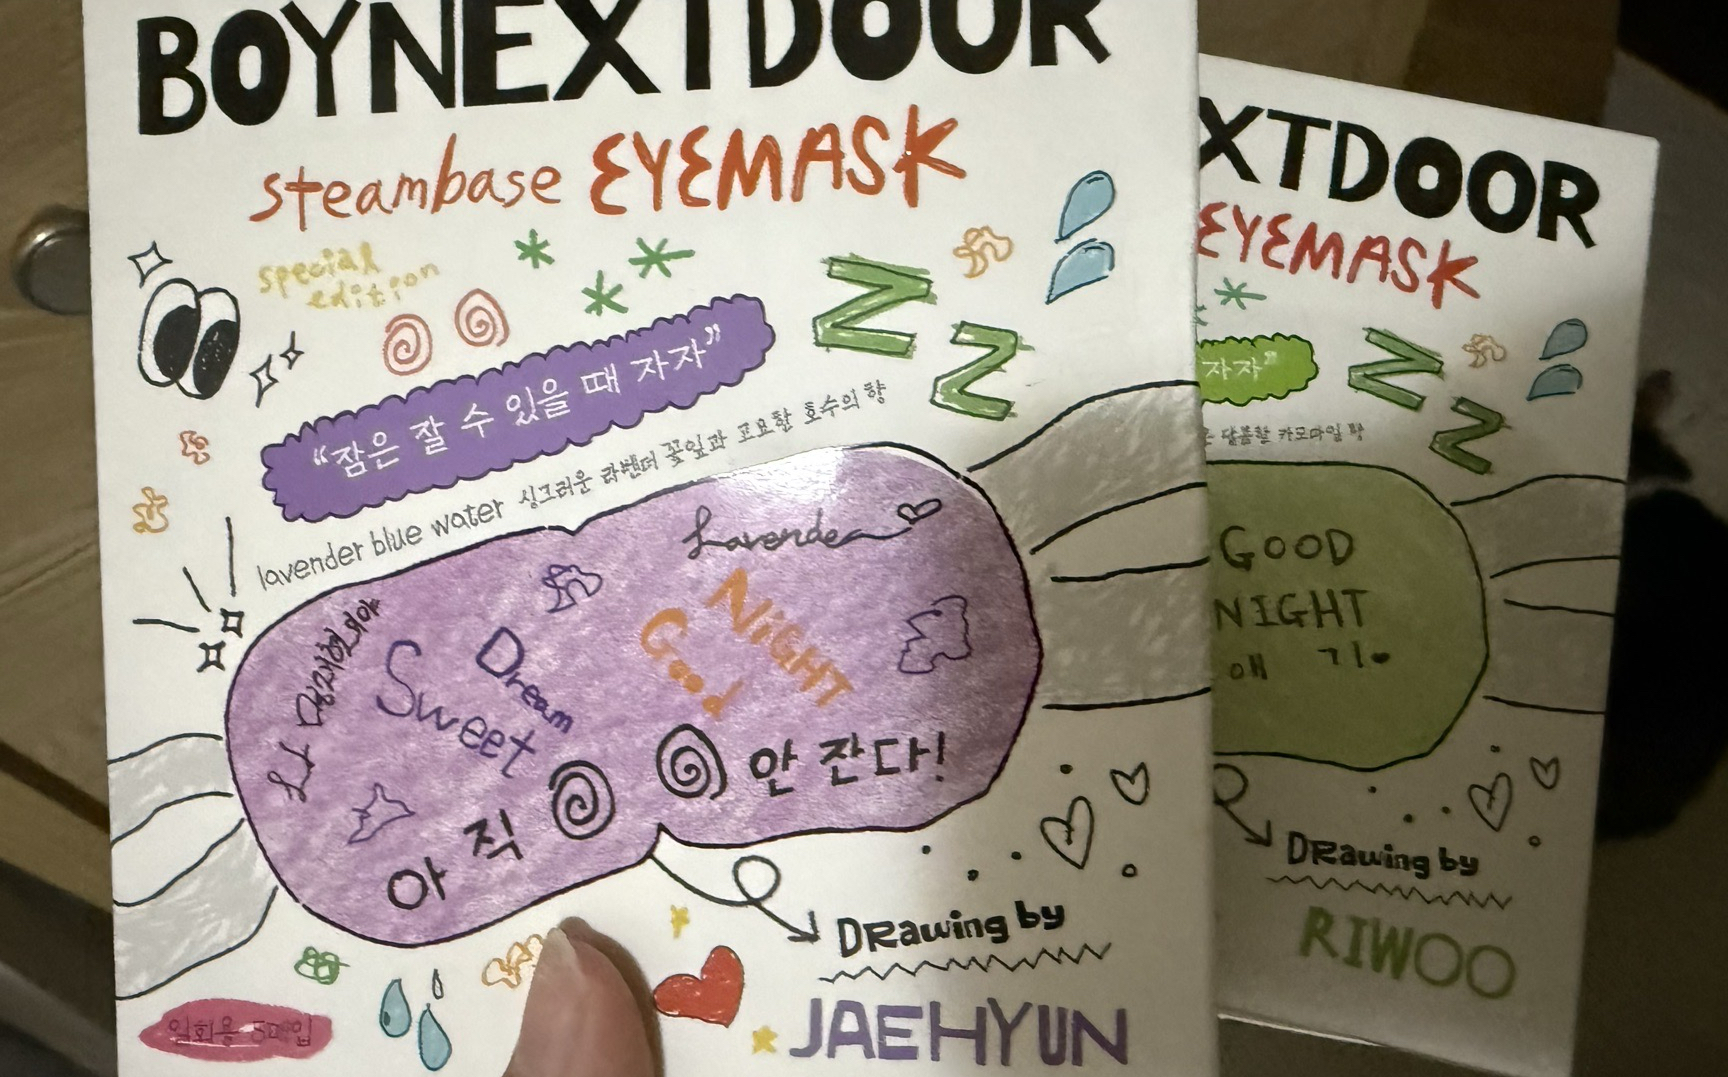 BOYNEXTDOOR
steambase EYEMASK
special
edition
“잠은 잘 수 있을 때 자자”
lavender blue water 싱그러운 라벤더 꽃잎과 고요한 호수의 향
Lavender
Sweet
Dream
Good
NiGHT
난 명재현이야
아직 안 잔다!
Drawing by
JAEHYUN
일회용 5매입
XTDOOR
EYEMASK
자자”
카모마일 향
GOOD
NIGHT
Drawing by
RIWOO